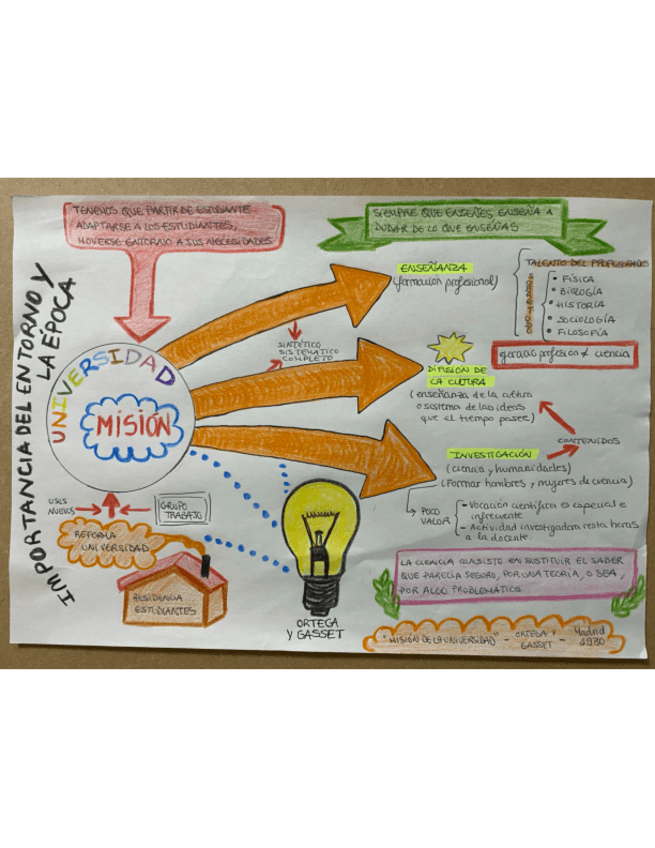 TENEMOS QUE PARTIR DE ESTUDIANTE.
ADAPTARSE A LOS ESTUDIANTES,
MOVERSE ENTORNO A SUS NECESIDADES
SIEMPRE QUE ENSEÑES, ENSEÑA A
DUDAR DE LO QUE ENSEÑAS
IMPORTANCIA DEL ENTORNO Y
LA EPOCA
UNIVERSIDAD
MISIÓN
ENSEÑANZA
(formación profesional)
TALENTO DEL PROFESORADO
• FÍSICA
• BIOLOGÍA
• HISTORIA
• SOCIOLOGÍA
• FILOSOFÍA
SINTÉTICO
SISTEMÁTICO
COMPLETO
profesión ≠ ciencia
DIFUSIÓN DE
LA CULTURA
(enseñanza de la cultura
o sistema de las ideas
que el tiempo posee)
CONTENIDOS
INVESTIGACIÓN
(ciencia y humanidades)
(Formar hombres y mujeres de ciencia)
POCO
VALOR
- Vocación científica es especial e
infrecuente
- Actividad investigadora resta horas
a la docente.
USOS
NUEVOS
GRUPO
TRABAJO
REFORMA
UNIVERSIDAD
RESIDENCIA
ESTUDIANTES
ORTEGA
Y GASSET
LA CIENCIA CONSISTE EN SUSTITUIR EL SABER
QUE PARECÍA SEGURO, POR UNA TEORÍA, O SEA,
POR ALGO PROBLEMÁTICO
"MISIÓN DE LA UNIVERSIDAD" - ORTEGA Y GASSET - Madrid 1930